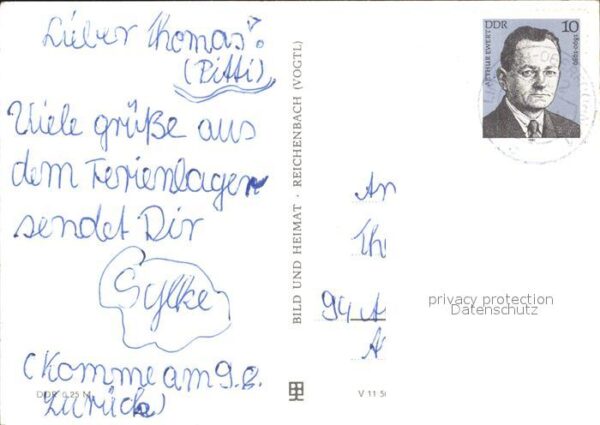 Lieber Thomas
(Pitti)
Viele grüße aus
dem Ferienlager
sendet Dir
Sylke
(Komme am 9.8.
zurück)
DDR 0,25 M
BILD UND HEIMAT · REICHENBACH (VOGTL)
V 11 50
DDR 10
ARTHUR EWERT
1890-1959
An
Th
94 A
A
privacy protection
Datenschutz